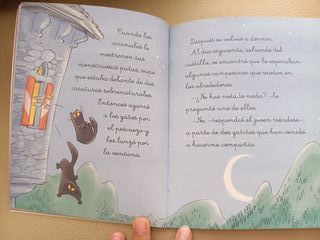 Cuando los
animales le
mostraron sus
monstruosas patas, supo
que estaba delante de dos
criaturas sobrenaturales.
Entonces agarró
a los gatos por
el pescuezo y
los lanzó por
la ventana.
Después se volvió a dormir.
Al día siguiente, saliendo del
castillo, se encontró que lo esperaban
algunos campesinos que vivían en
los alrededores.
—¿No has notado nada? —le
preguntó uno de ellos.
—No, —respondió el joven riéndose—,
a parte de dos gatitos que han venido
a hacerme compañía.